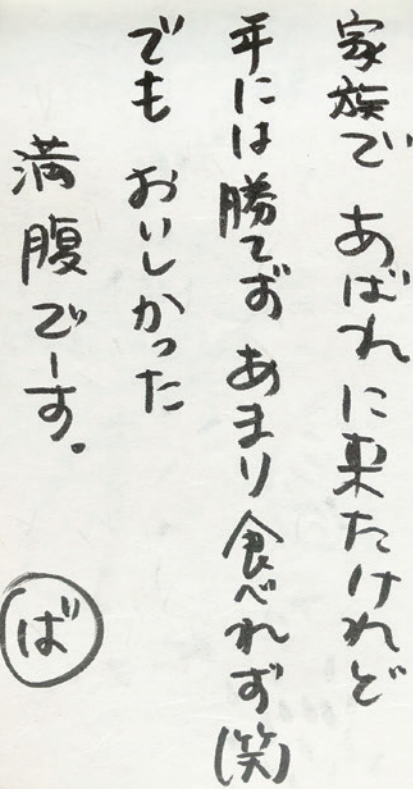 家族で あばれに来たけれど
年には勝てず あまり食べれず(笑)
でも おいしかった
満腹でーす。
ば